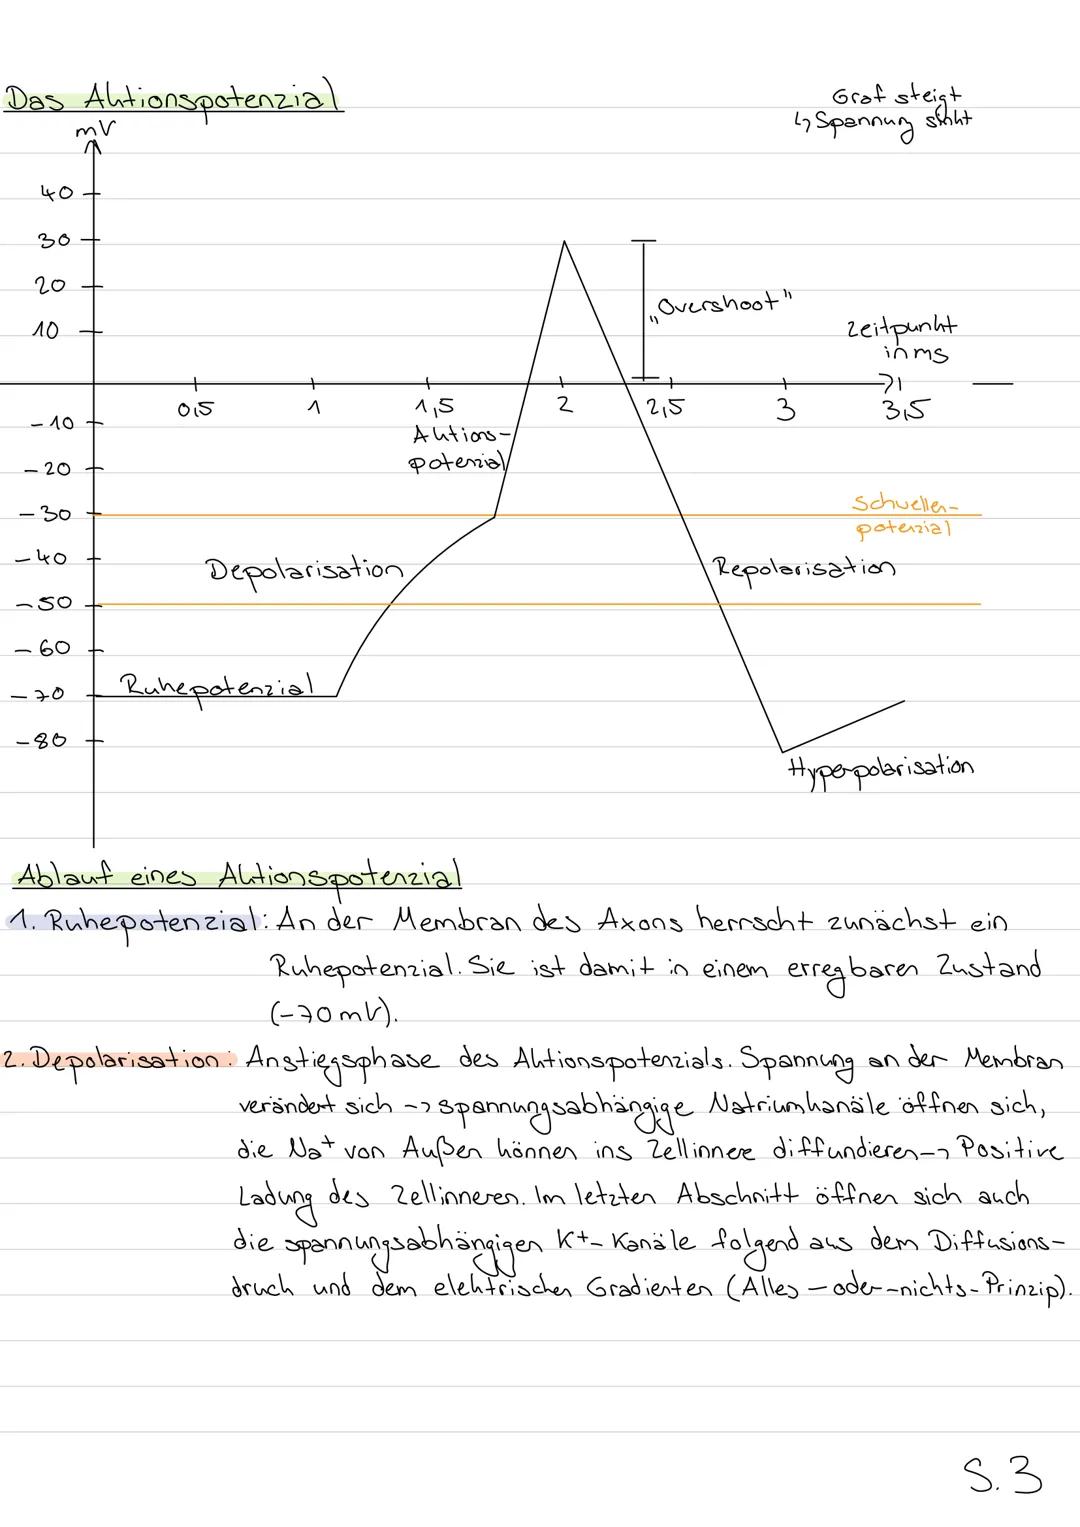 Das Aktionspotenzial
Graf steigt
↳ Spannung sinkt
mV
40
30
20
10
„Overshoot"
Zeitpunkt
in ms
0,5
1
1,5
2
2,5
3
3,5
-10
-20
-30
-40
-50
-60
-70
-80
Aktions-
potenzial
Schwellen-
potenzial
Depolarisation
Repolarisation
Ruhepotenzial
Hyperpolarisation
Ablauf eines Aktionspotenzial
1. Ruhepotenzial: An der Membran des Axons herrscht zunächst ein
Ruhepotenzial. Sie ist damit in einem erregbaren Zustand
(-70mV).
2. Depolarisation: Anstiegsphase des Aktionspotenzials. Spannung an der Membran
verändert sich -> spannungsabhängige Natriumkanäle öffnen sich,
die Na+ von Außen können ins Zellinnere diffundieren -> Positive
Ladung des Zellinneren. Im letzten Abschnitt öffnen sich auch
die spannungsabhängigen K+- Kanäle folgend aus dem Diffusions-
druck und dem elektrischen Gradienten (Alles-oder-nichts-Prinzip).
S. 3